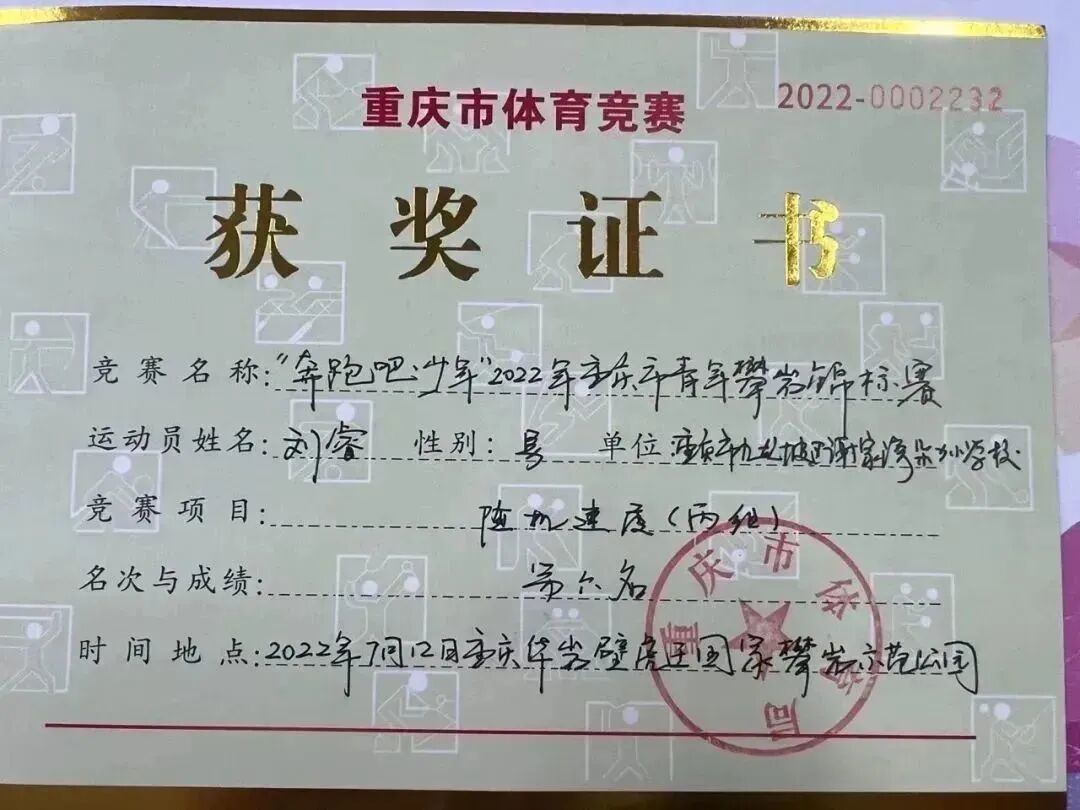 重庆市体育竞赛
2022-0002232
获奖证书
竞赛名称:"奔跑吧·少年"2022年重庆市青年攀岩锦标赛
运动员姓名:刘睿 性别:男 单位:重庆市九龙坡区谢家湾小学校
竞赛项目:随机速度(丙组)
名次与成绩:第六名
时间地点:2022年7月12日重庆华岩壁虎王国家攀岩示范公园
重庆市体育局